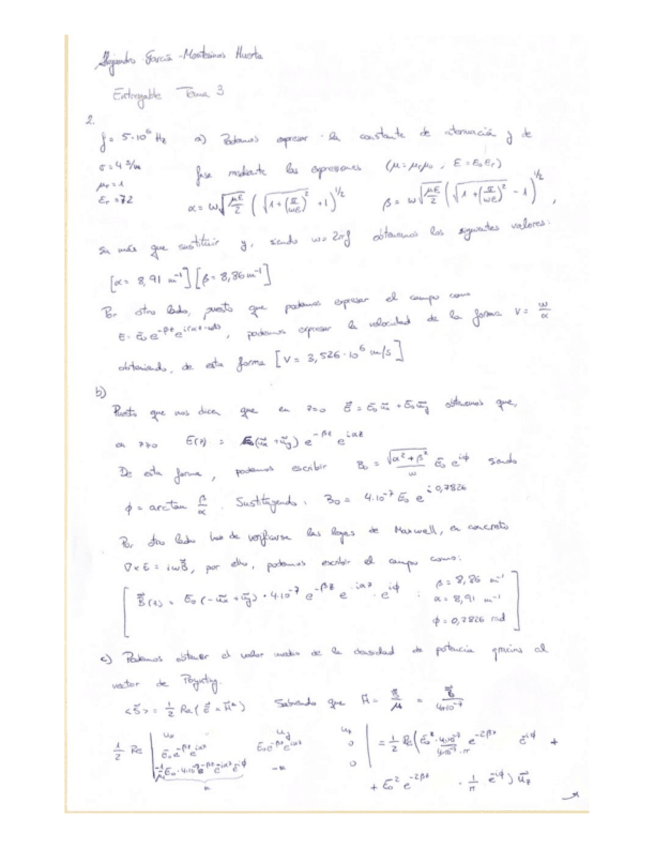 Alejandro García-Montesinos Huerta
Entregable Tema 3
2.
f = 5·10⁶ Hz   a) Podemos expresar la constante de atenuación y de
σ = 4 S/m   fase mediante las expresiones (μ = μrμ₀, ε = ε₀εr)
μr = 1
εr = 72   α = ω√(με/2) (√(1+(σ/ωε)²) + 1)^1/2   β = ω√(με/2) (√(1+(σ/ωε)²) - 1)^1/2,
sin más que sustituir y, siendo ω = 2πf obtenemos los siguientes valores:
[α = 8,91 m⁻¹] [β = 8,86 m⁻¹]
Por otro lado, puesto que podemos expresar el campo como
, podemos expresar la velocidad de la forma V = ω/α
obteniendo, de esta forma [V = 3,526·10⁶ m/s]
b)
Puesto que nos dicen que en z=0 E⃗ = E₀u⃗x + E₀u⃗y obtenemos que,
en z>0   E(z) = E₀(u⃗x + u⃗y) e^-βz e^iαz
De esta forma, podemos escribir B₀ = √(α²+β²)/ω E₀ e^iϕ siendo
ϕ = arctan β/α. Sustituyendo: B₀ = 4·10⁻⁷ E₀ e^i0,7826
Por otro lado han de verificarse las leyes de Maxwell, en concreto
∇×E = iωB⃗, por ello, podemos escribir el campo como:
[B⃗(z) = E₀(-u⃗x + u⃗y)·4·10⁻⁷ e^-βz e^iαz · e^iϕ ;   β = 8,86 m⁻¹
α = 8,91 m⁻¹
ϕ = 0,7826 rad]
c) Podemos obtener el valor medio de la densidad de potencia gracias al
vector de Poynting.
<S⃗> = 1/2 Re(E⃗ × H⃗*)   Sabiendo que H⃗ = B⃗/μ = B⃗/4π10⁻⁷
ux   uy   uz
1/2 Re | E₀e^-βz e^iαz   E₀e^-βz e^iαz   0 | = 1/2 Re(
+ E₀² e^-2βz · 1/π e^-iϕ) u⃗z